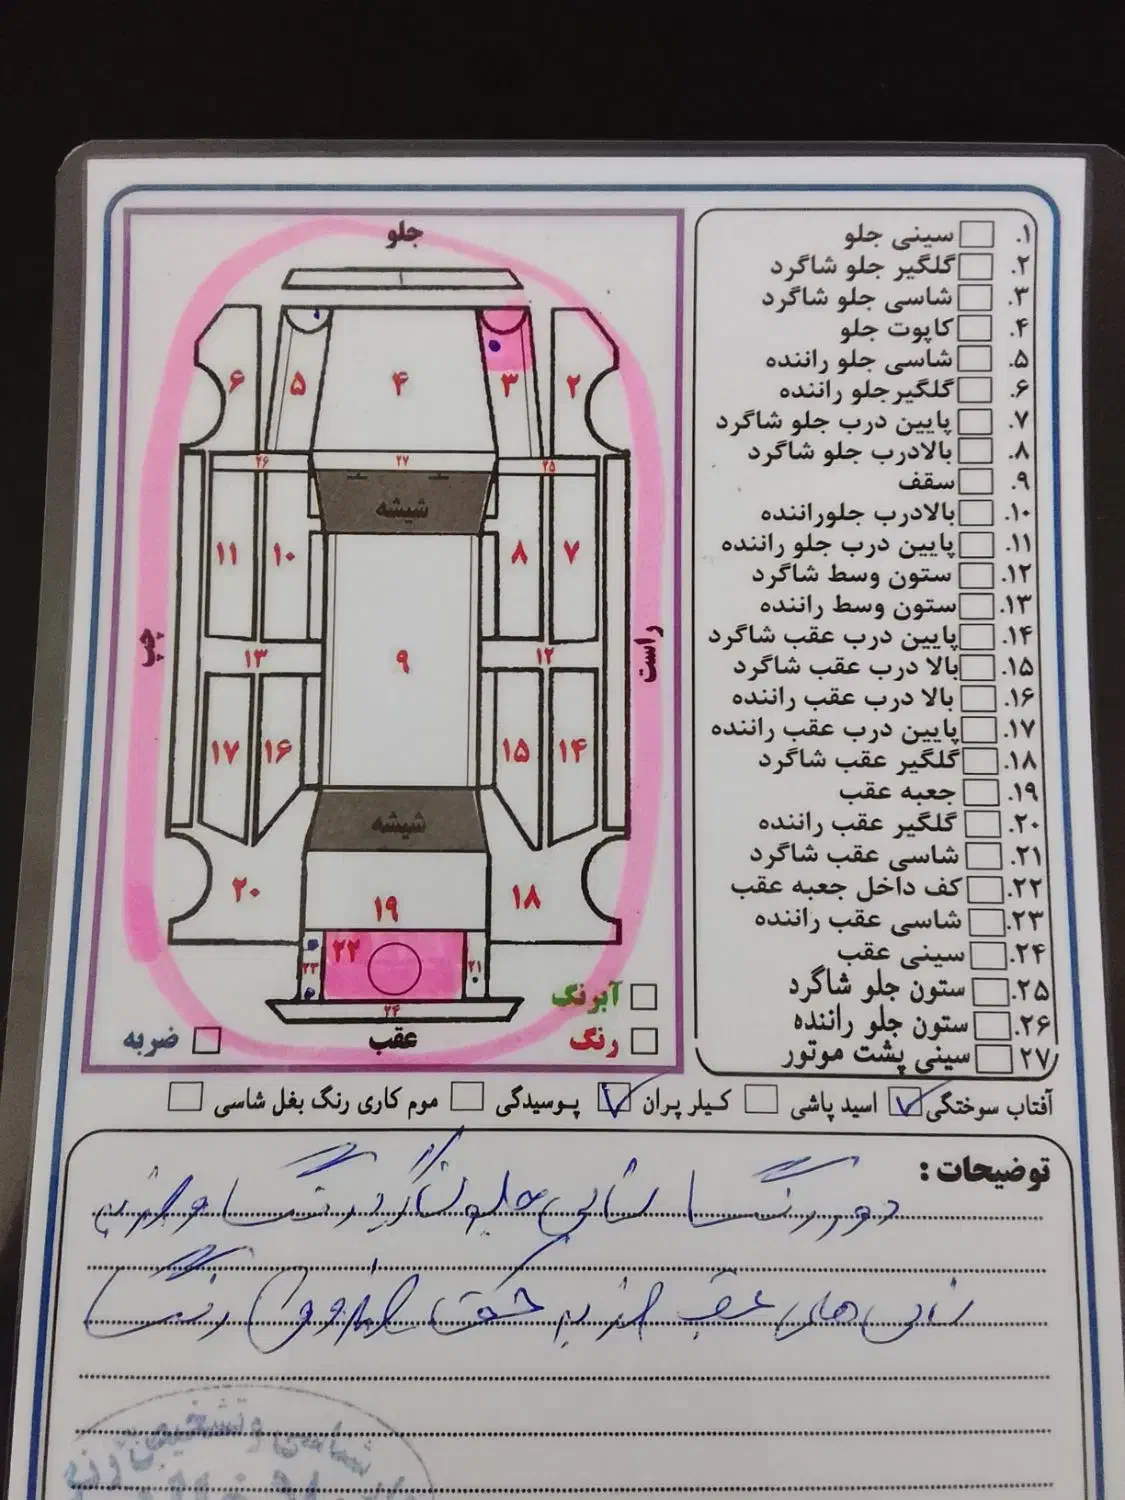 جلو
۱
۶
۵
۴
۳
۲
۲۶
۲۷
۲۵
شیشه
۱۱
۱۰
۸
۷
چپ
راست
۱۳
۹
۱۲
۱۷
۱۶
۱۵
۱۴
شیشه
۲۰
۱۹
۱۸
۲۲
۲۳
۲۱
۲۴
عقب
آبرنگ
رنگ
ضربه
۱. سینی جلو
۲. گلگیر جلو شاگرد
۳. شاسی جلو شاگرد
۴. کاپوت جلو
۵. شاسی جلو راننده
۶. گلگیرجلو راننده
۷. پایین درب جلو شاگرد
۸. بالادرب جلو شاگرد
۹. سقف
۱۰. بالادرب جلوراننده
۱۱. پایین درب جلو راننده
۱۲. ستون وسط شاگرد
۱۳. ستون وسط راننده
۱۴. پایین درب عقب شاگرد
۱۵. بالا درب عقب شاگرد
۱۶. بالا درب عقب راننده
۱۷. پایین درب عقب راننده
۱۸. گلگیر عقب شاگرد
۱۹. جعبه عقب
۲۰. گلگیر عقب راننده
۲۱. شاسی عقب شاگرد
۲۲. کف داخل جعبه عقب
۲۳. شاسی عقب راننده
۲۴. سینی عقب
۲۵. ستون جلو شاگرد
۲۶. ستون جلو راننده
۲۷ سینی پشت موتور
آفتاب سوختگی اسید پاشی کیلر پران پوسیدگی موم کاری رنگ بغل شاسی
توضیحات :
دور رنگ شاسی جلو شاگرد رنگ و ضربه
شاسی های عقب ضربه صندوق رنگ